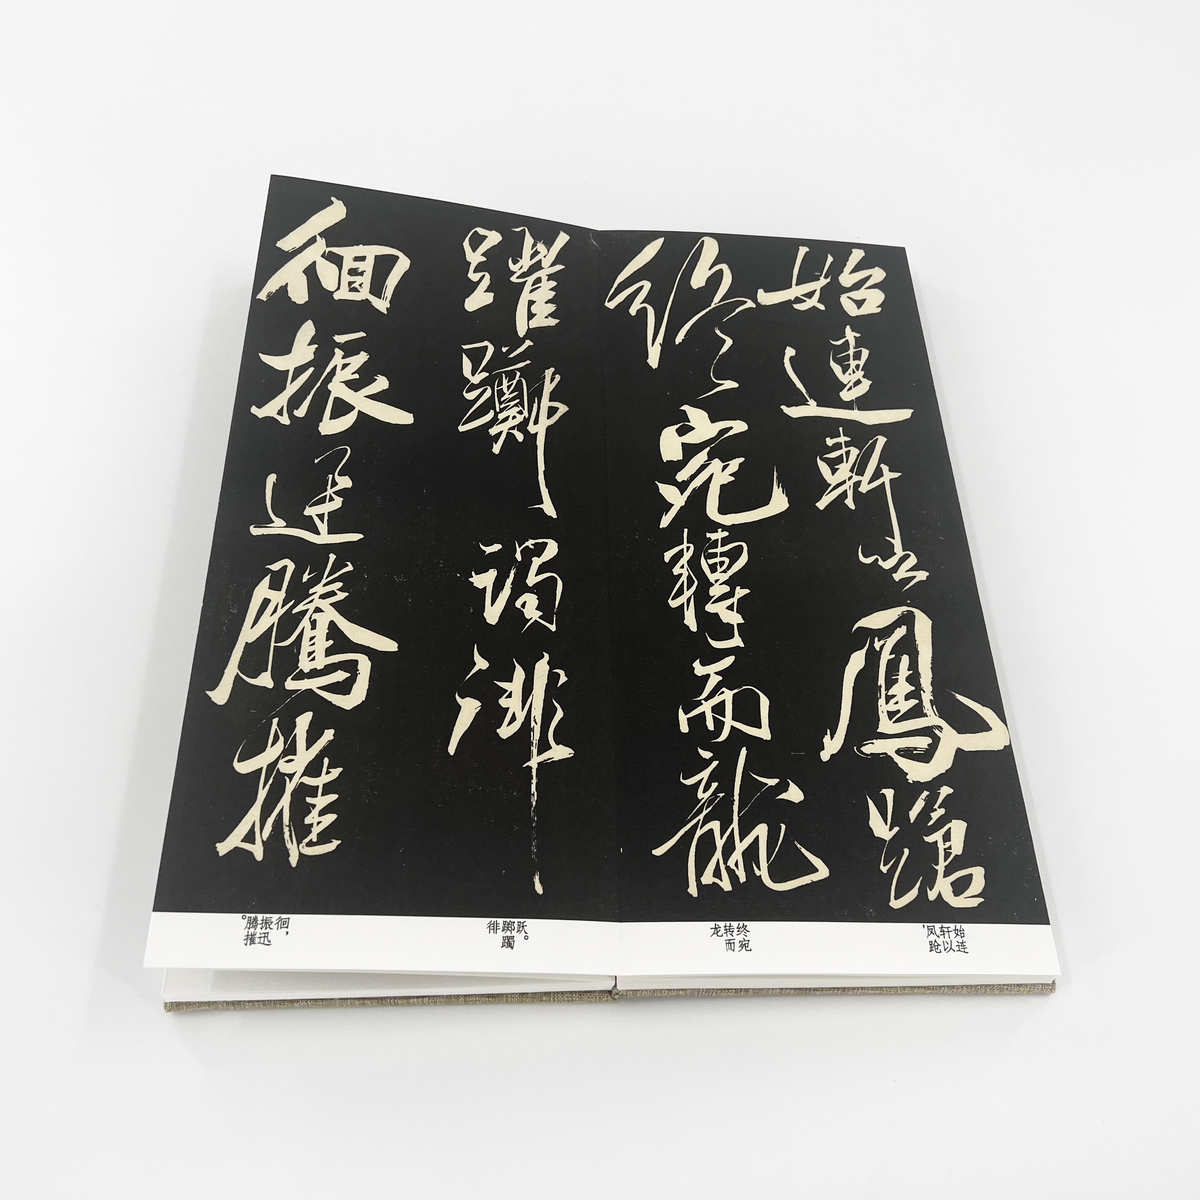 始連軒以鳳蹌
終宛轉而龍
躍躑躅徘
徊振迅騰摧
始连
轩以
凤跄
，
终宛
转而
龙
跃。
踯躅
徘
徊，
振迅
腾摧
。